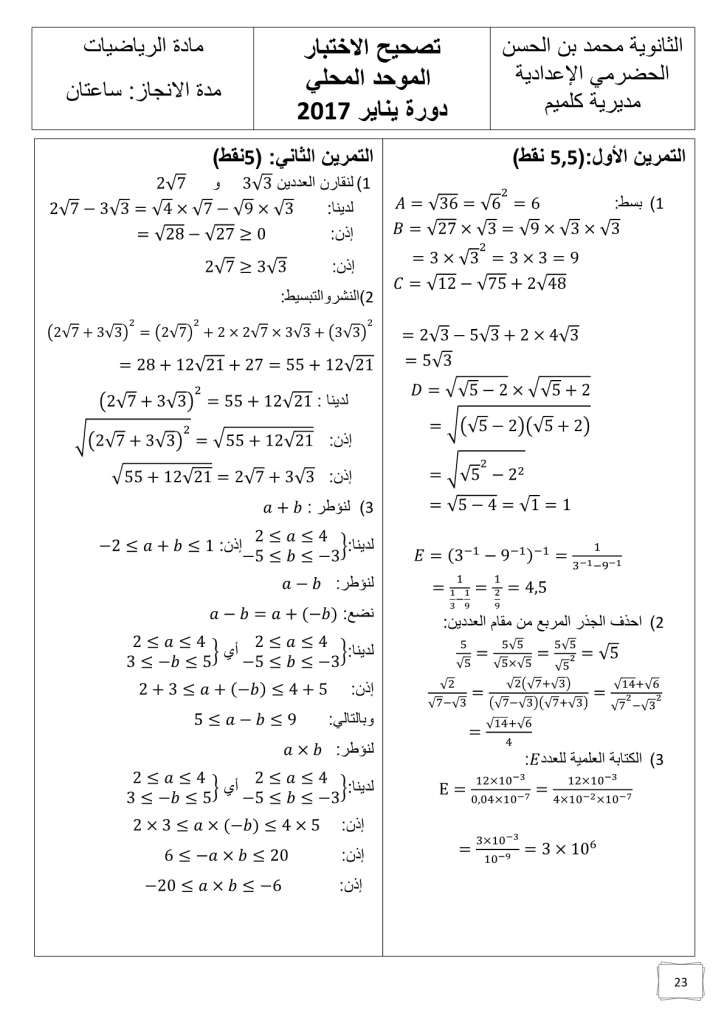 الثانوية محمد بن الحسن
الحضرمي الإعدادية
مديرية كلميم
تصحيح الاختبار
الموحد المحلي
دورة يناير 2017
مادة الرياضيات
مدة الانجاز: ساعتان
التمرين الأول:(5,5 نقط)
1) بسط: A = √36 = √6² = 6
B = √27 × √3 = √9 × √3 × √3
= 3 × √3² = 3 × 3 = 9
C = √12 − √75 + 2√48
= 2√3 − 5√3 + 2 × 4√3
= 5√3
D = √(√5 − 2) × √(√5 + 2)
= √((√5 − 2)(√5 + 2))
= √(√5² − 2²)
= √(5 − 4) = √1 = 1
E = (3⁻¹ − 9⁻¹)⁻¹ = 1/(3⁻¹−9⁻¹)
= 1/(1/3 − 1/9) = 1/(2/9) = 4,5
2) احذف الجذر المربع من مقام العددين:
5/√5 = 5√5/(√5×√5) = 5√5/√5² = √5
√2/(√7−√3) = √2(√7+√3)/((√7−√3)(√7+√3)) = (√14+√6)/(√7²−√3²)
= (√14+√6)/4
3) الكتابة العلمية للعددE:
E = (12×10⁻³)/(0,04×10⁻⁷) = (12×10⁻³)/(4×10⁻²×10⁻⁷)
= (3×10⁻³)/10⁻⁹ = 3 × 10⁶
التمرين الثاني: (5نقط)
1) لنقارن العددين 3√3 و 2√7
لدينا: 2√7 − 3√3 = √4 × √7 − √9 × √3
إذن: = √28 − √27 ≥ 0
إذن: 2√7 ≥ 3√3
2)النشروالتبسيط:
(2√7 + 3√3)² = (2√7)² + 2 × 2√7 × 3√3 + (3√3)²
= 28 + 12√21 + 27 = 55 + 12√21
لدينا : (2√7 + 3√3)² = 55 + 12√21
إذن: √((2√7 + 3√3)²) = √(55 + 12√21)
إذن: √(55 + 12√21) = 2√7 + 3√3
3) لنؤطر : a + b
لدينا:{2 ≤ a ≤ 4 −5 ≤ b ≤ −3 إذن: −2 ≤ a + b ≤ 1
لنؤطر: a − b
نضع: a − b = a + (−b)
لدينا:{2 ≤ a ≤ 4 −5 ≤ b ≤ −3 أي {2 ≤ a ≤ 4 3 ≤ −b ≤ 5
إذن: 2 + 3 ≤ a + (−b) ≤ 4 + 5
وبالتالي: 5 ≤ a − b ≤ 9
لنؤطر: a × b
لدينا:{2 ≤ a ≤ 4 −5 ≤ b ≤ −3 أي {2 ≤ a ≤ 4 3 ≤ −b ≤ 5
إذن: 2 × 3 ≤ a × (−b) ≤ 4 × 5
إذن: 6 ≤ −a × b ≤ 20
إذن: −20 ≤ a × b ≤ −6
23